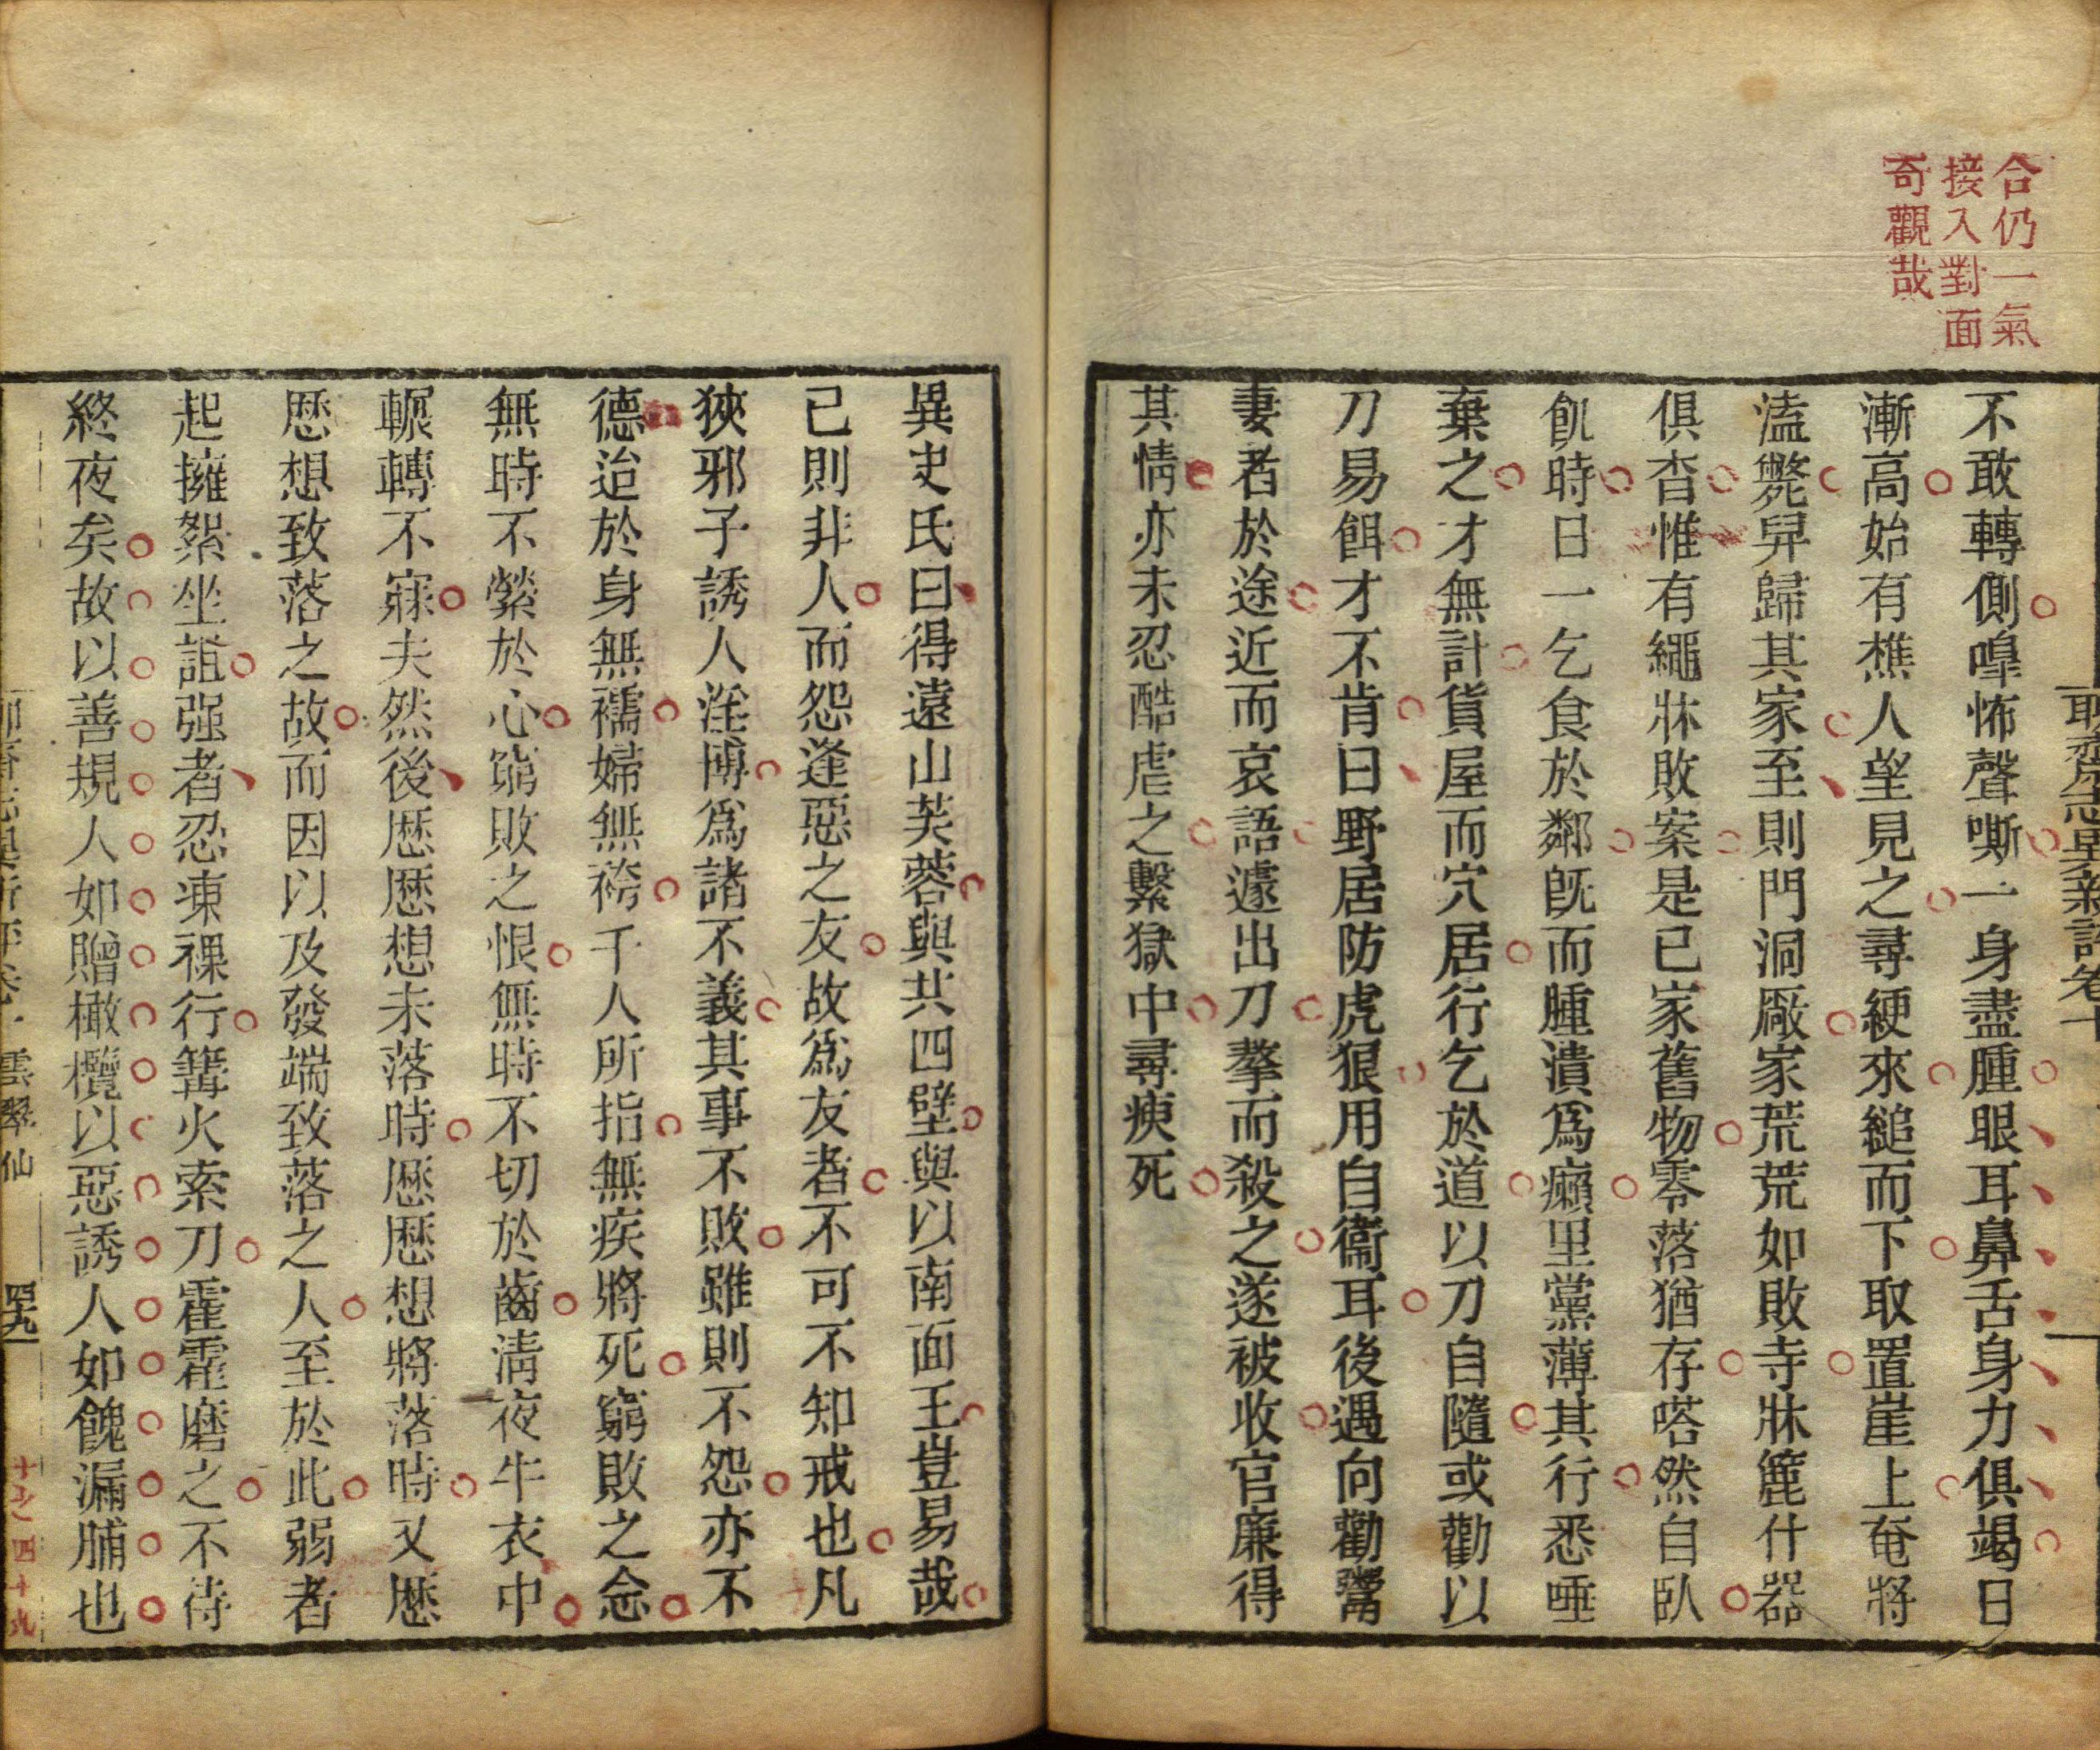 合仍一氣
接入對面
奇觀哉
不敢轉側嘷怖聲嘶一身盡腫眼耳鼻舌身力俱竭日
漸高始有樵人望見之尋綆來縋而下取置崖上奄將
溘斃舁歸其家至則門洞厰家荒荒如敗寺牀簏什器
俱杳惟有繩牀敗案是己家舊物零落猶存嗒然自臥
飢時日一乞食於鄰旣而腫潰爲癩里黨薄其行悉唾
棄之才無計貨屋而穴居行乞於道以刀自隨或勸以
刀易餌才不肯曰野居防虎狠用自衞耳後遇向勸鬻
妻者於途近而哀語遽出刀摮而殺之遂被收官廉得
其情亦未忍酷虐之繫獄中尋瘐死
異史氏曰得遠山芙蓉與共四壁與以南面王豈易哉
己則非人而怨逢惡之友故爲友者不可不知戒也凡
狹邪子誘人淫博爲諸不義其事不敗雖則不怨亦不
德迨於身無襦婦無袴千人所指無疾將死窮敗之念
無時不縈於心窮敗之恨無時不切於齒淸夜牛衣中
輾轉不寐夫然後歷歷想未落時歷歷想將落時又歷
歷想致落之故而因以及發端致落之人至於此弱者
起擁絮坐詛强者忍凍裸行篝火索刀霍霍磨之不待
終夜矣故以善規人如贈橄欖以惡誘人如餽漏脯也
聊齋志異新評卷十
雲翠仙
四十九
十 四十九